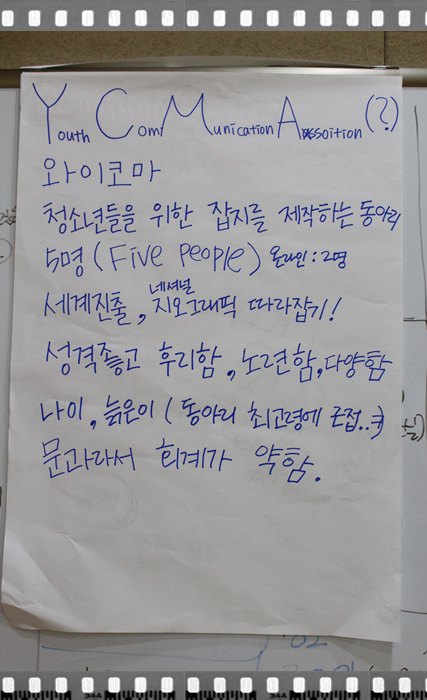 Youth ComMunication Assoition (?)
와이코마
청소년들을 위한 잡지를 제작하는 동아리
5명 (Five People) 온라인 : 2명
세계진출, 네셔널 지오그래픽 따라잡기!
성격좋고 후리함, 노련함, 다양함
나이, 늙은이 (동아리 최고령에 근접..ㅋ)
문과라서 회계가 약함.